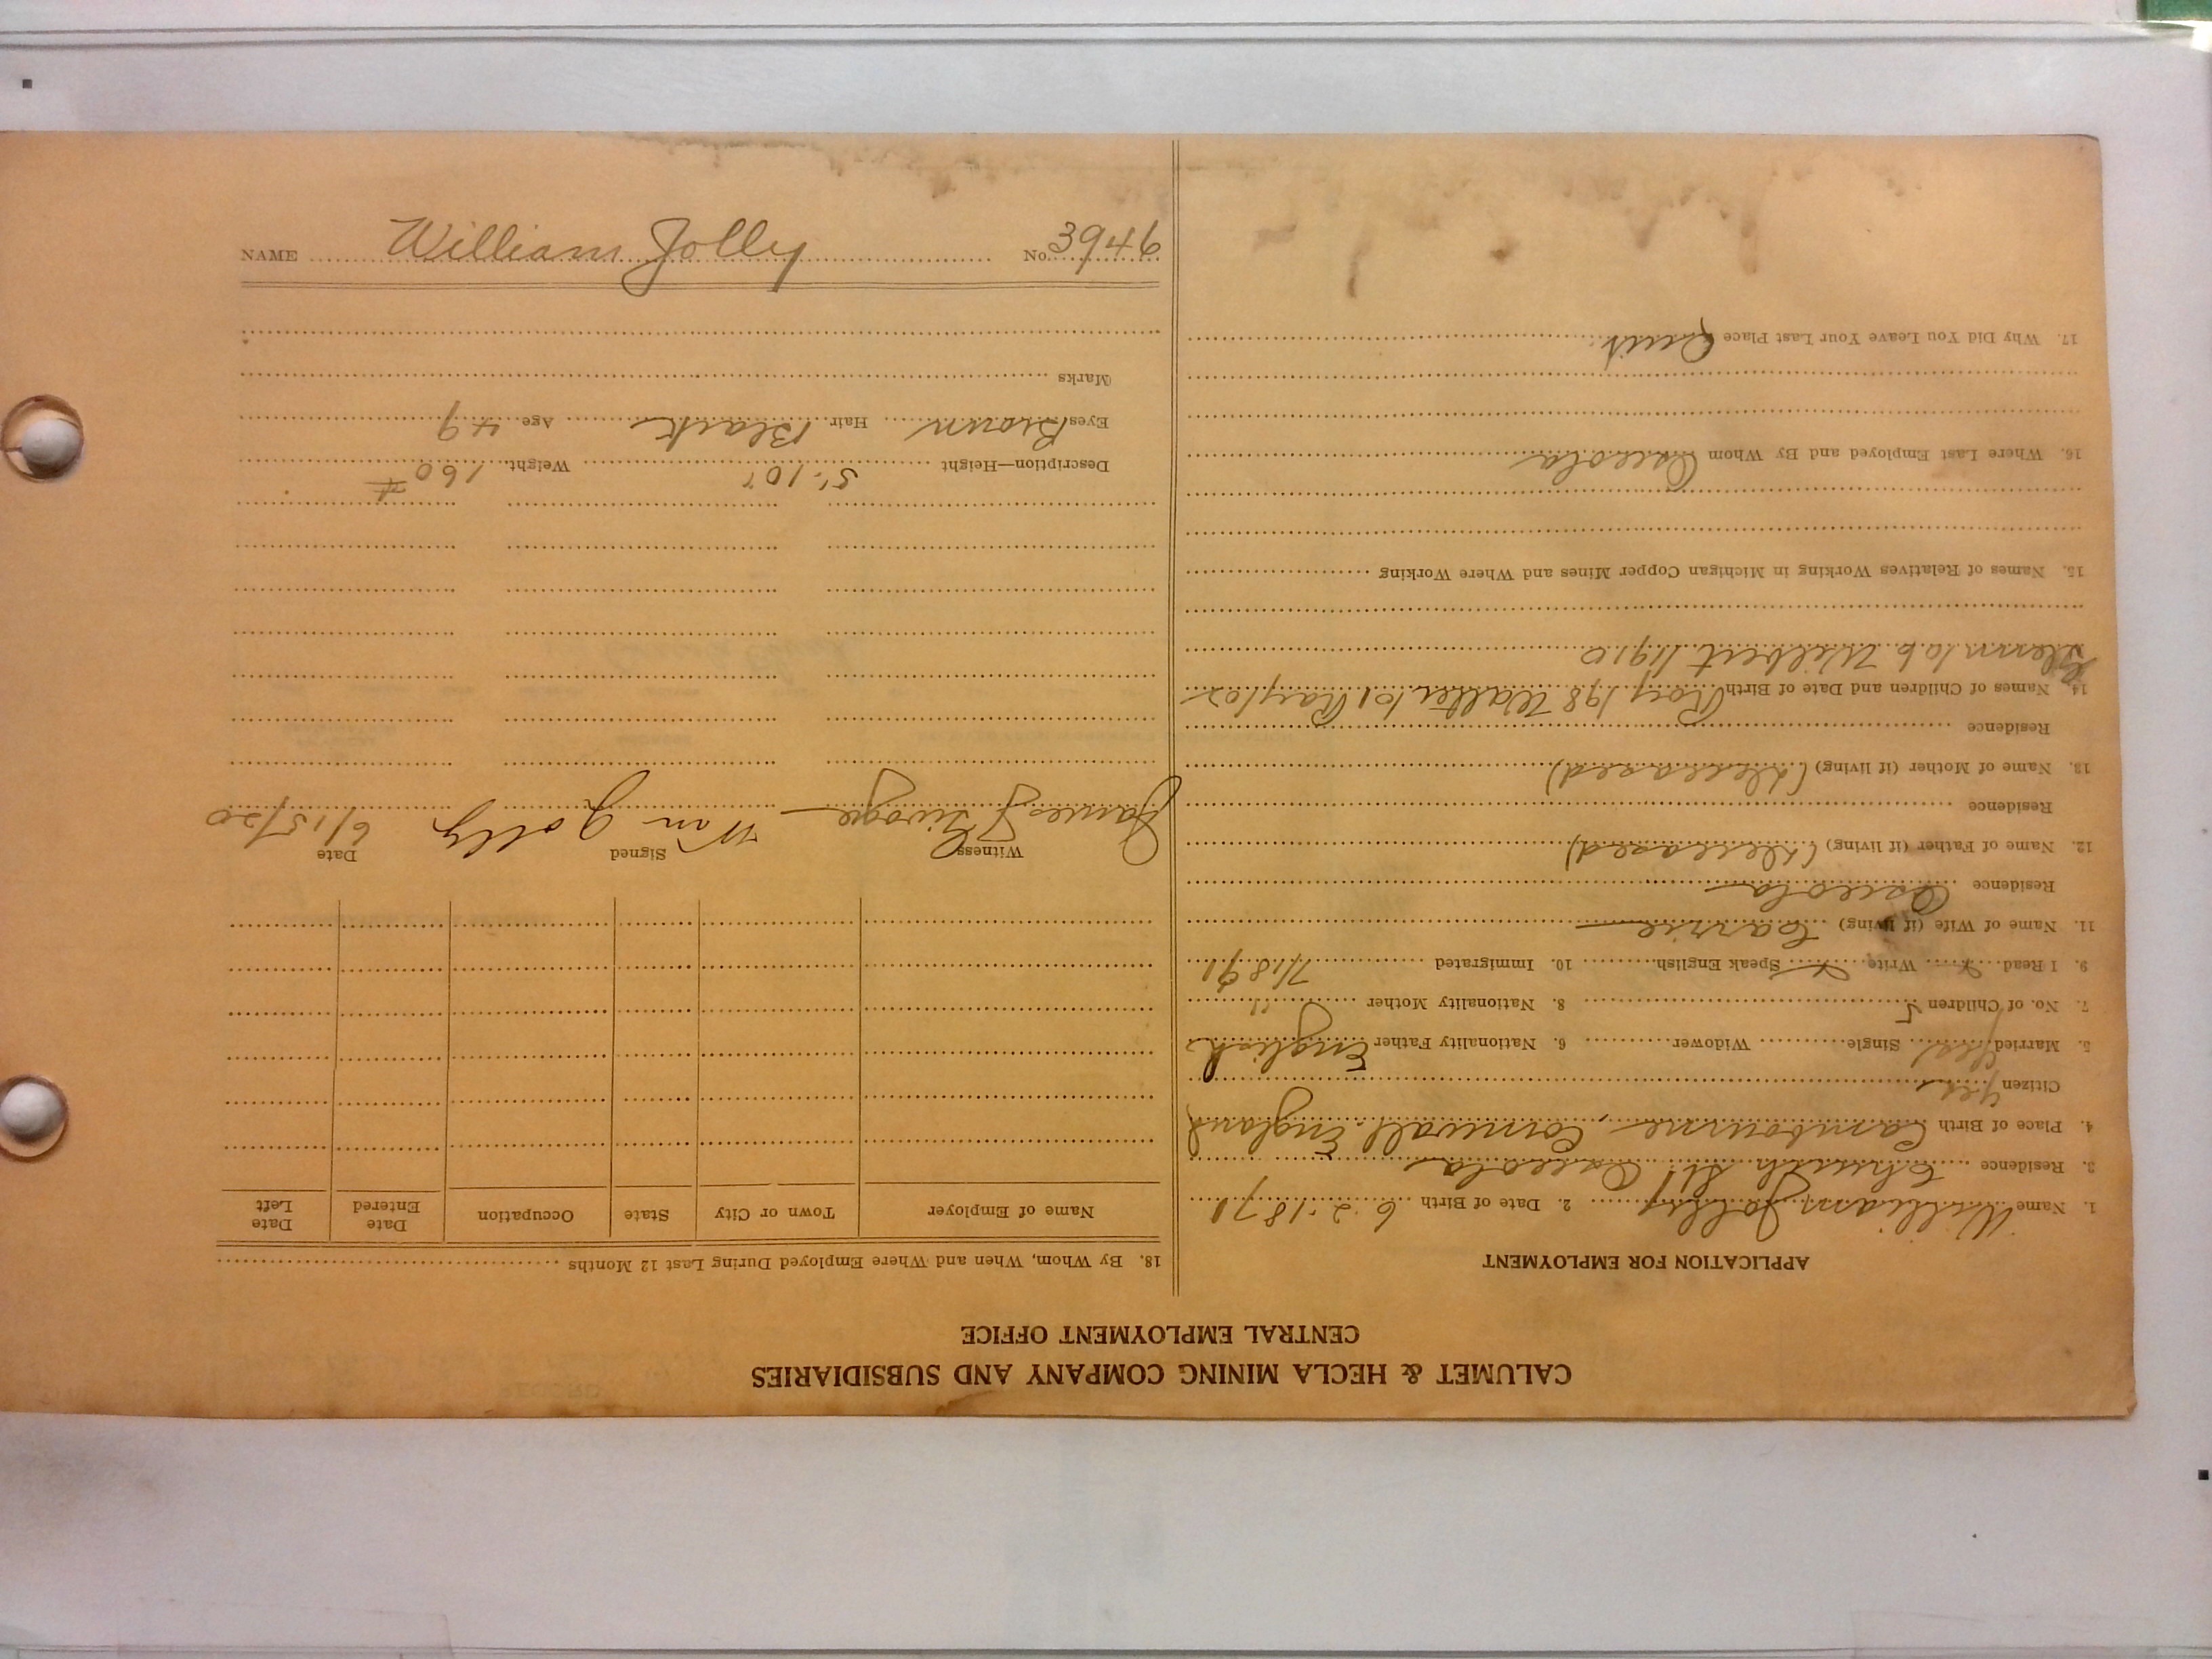 CALUMET & HECLA MINING COMPANY AND SUBSIDIARIES
CENTRAL EMPLOYMENT OFFICE
APPLICATION FOR EMPLOYMENT
1. Name William Jolly 2. Date of Birth 6-2-1871
3. Residence Church St Osceola
4. Place of Birth Cambourne, Cornwall, England
Citizen yes
5. Married Yes Single Widower 6. Nationality Father English
7. No. of Children 5 8. Nationality Mother "
9. I Read x Write x Speak English 10. Immigrated 7/1891
11. Name of Wife (if living) Carrie
Residence Osceola
12. Name of Father (if living) (Deceased)
Residence
13. Name of Mother (if living) (Deceased)
Residence
14. Names of Children and Date of Birth Roy/98 Walter/01 Ray/02
Glenn/06 Wilbert/1910
15. Names of Relatives Working in Michigan Copper Mines and Where Working
16. Where Last Employed and By Whom Osceola
17. Why Did You Leave Your Last Place Quit
18. By Whom, When and Where Employed During Last 12 Months
Name of Employer Town or City State Occupation Date Entered Date Left
Witness Signed Date
James Wm Jolly 6/15/20
Description—Height 5'-10" Weight 160 #
Eyes Brown Hair Black Age 49
Marks
NAME William Jolly No. 3946